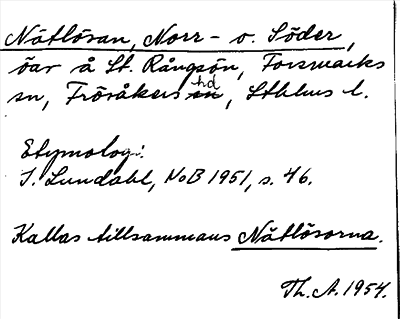 Nätlösan, Norr- o. Söder,
öar å St. Rångsön, Forsmarks
sn, Frösåkers hd, Sthlms l.
Etymologi:
I. Lundahl, NoB 1951, s. 46.
Kallas tillsammans Nätlösorna.
Th. A. 1954.